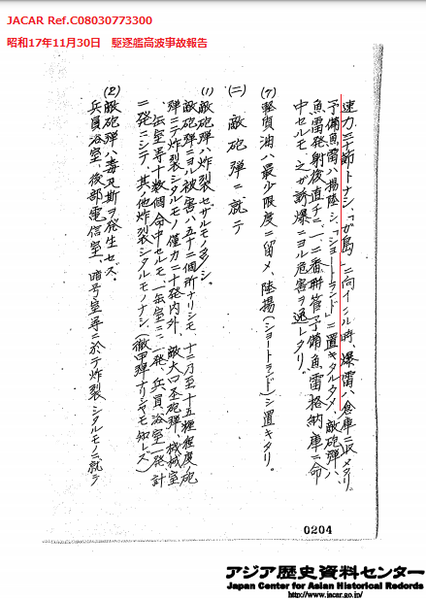 JACAR Ref.C08030773300
昭和17年11月30日 駆逐艦高波事故報告
速力三十節トナシ、「ガ島」ニ向イシ時、爆雷ハ倉庫ニ収メタリ。
予備魚雷ハ揚陸シ、「ショートランド」ニ置キタルタメ、敵砲弾ハ、
魚雷発射後直チニ一、二番聯管予備魚雷格納庫ニ命
中セルモ之ガ誘爆ニヨル危害ヲ逃レタリ。
(7) 堅質油ハ最少限度ニ留メ、陸揚(ショートランド)シ置キタリ。
(二) 敵砲弾ニ就テ
(1) 敵砲弾ハ炸裂セザルモノ多シ。
敵砲弾ニヨル被害ハ五十二個所ナリシモ、十二乃至十五糎程度ノ砲
弾ニテ炸裂シタルモノ僅カ二十発内外、敵大口本砲弾、機械室
缶室等十数個命中セルモ缶室ニ一発、兵員浴室一発計
二発ニシテ其他炸裂シタルモノナシ、(徹甲弾ナリシヤモ知レズ)
(2) 敵砲弾ハ毒瓦斯ヲ発生セズ。
兵員浴室、後部電信室、暗号室等ニ於テ炸裂シタルモノニ就テ
0204
アジア歴史資料センター
Japan Center for Asian Historical Records
http://www.jacar.go.jp/